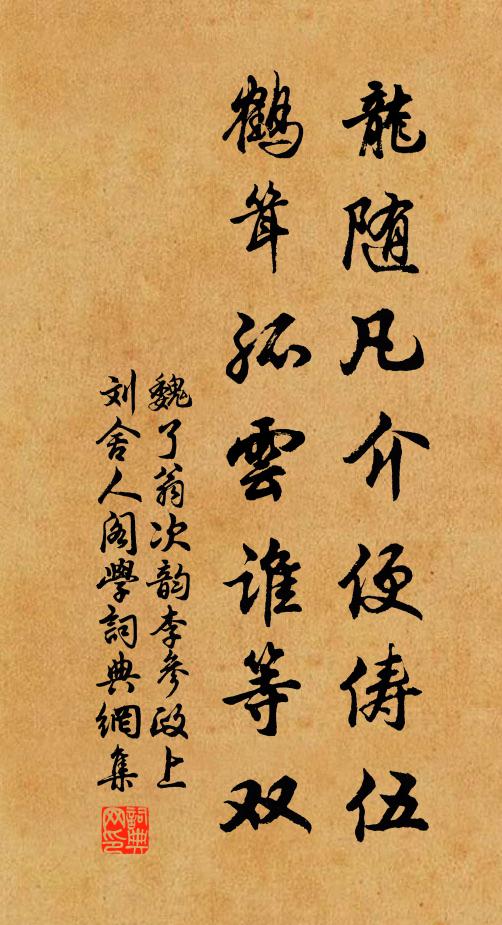 龍随凡介便儔伍
鶴耸孤雲谁等双
魏了翁次韵李參政上
刘舍人阁學詞典網集
詞典网印